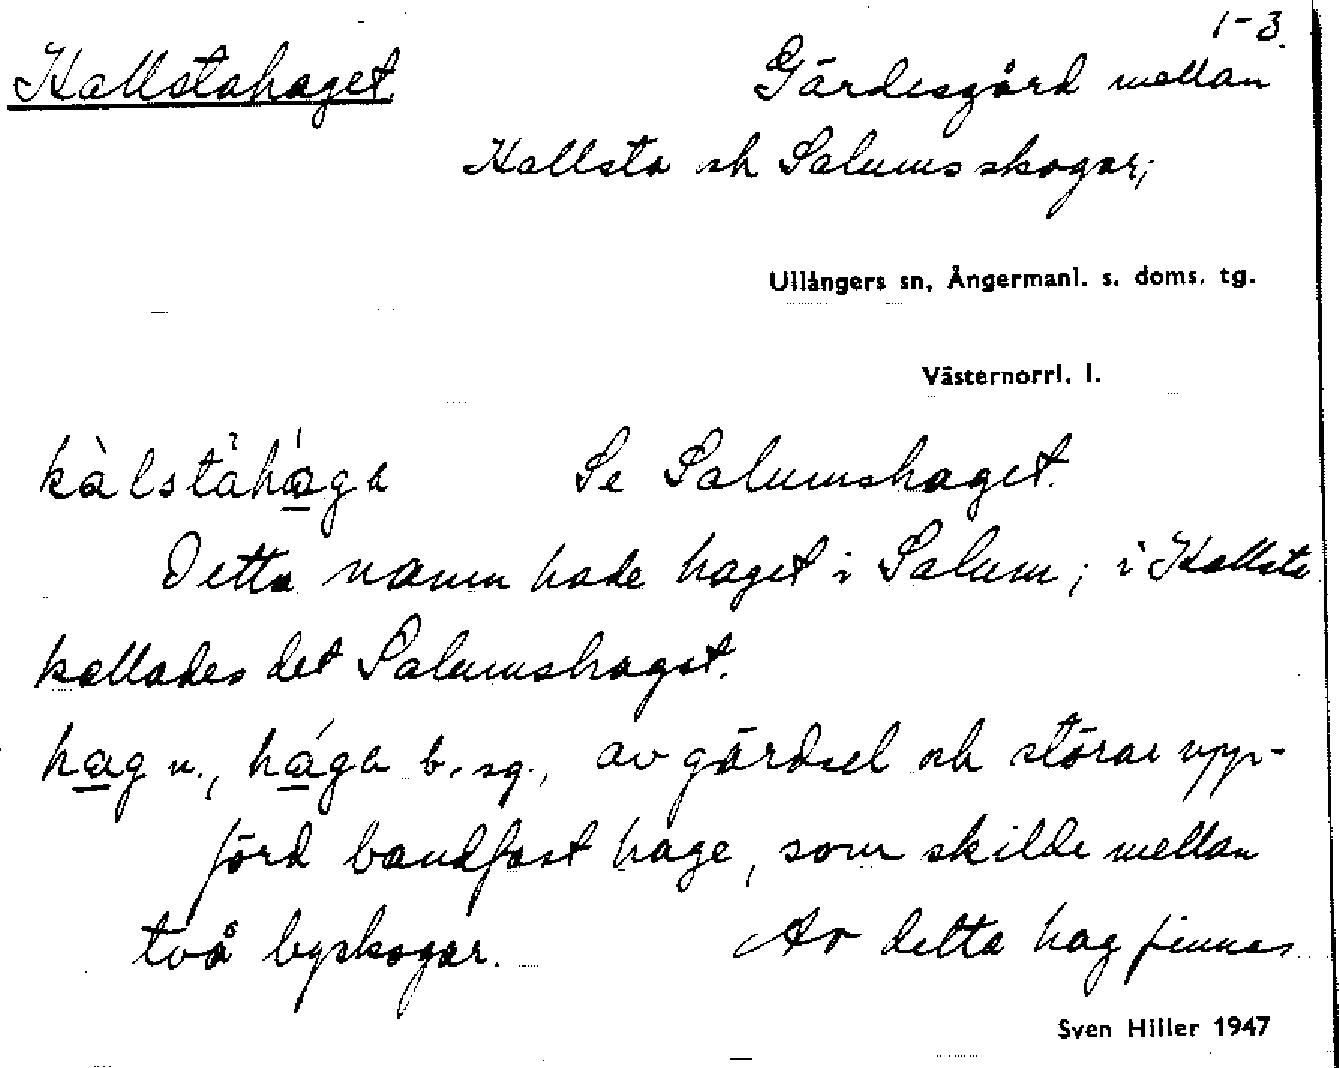 1-3.
Kallstahaget. Gärdesgård mellan
Kallsta och Salums skogar;
Ullångers sn, Ångermanl. s. doms. tg.
Västernorrl. l.
kàlstàhága Se Salumshaget.
Detta namn hade haget i Salum; i Kallsta
kallades det Salumshaget.
hag n., hága b. sg., av gärdsel och störar upp-
förd bandfast hage, som skilde mellan
två byskogar. Av detta hag finnes
Sven Hiller 1947